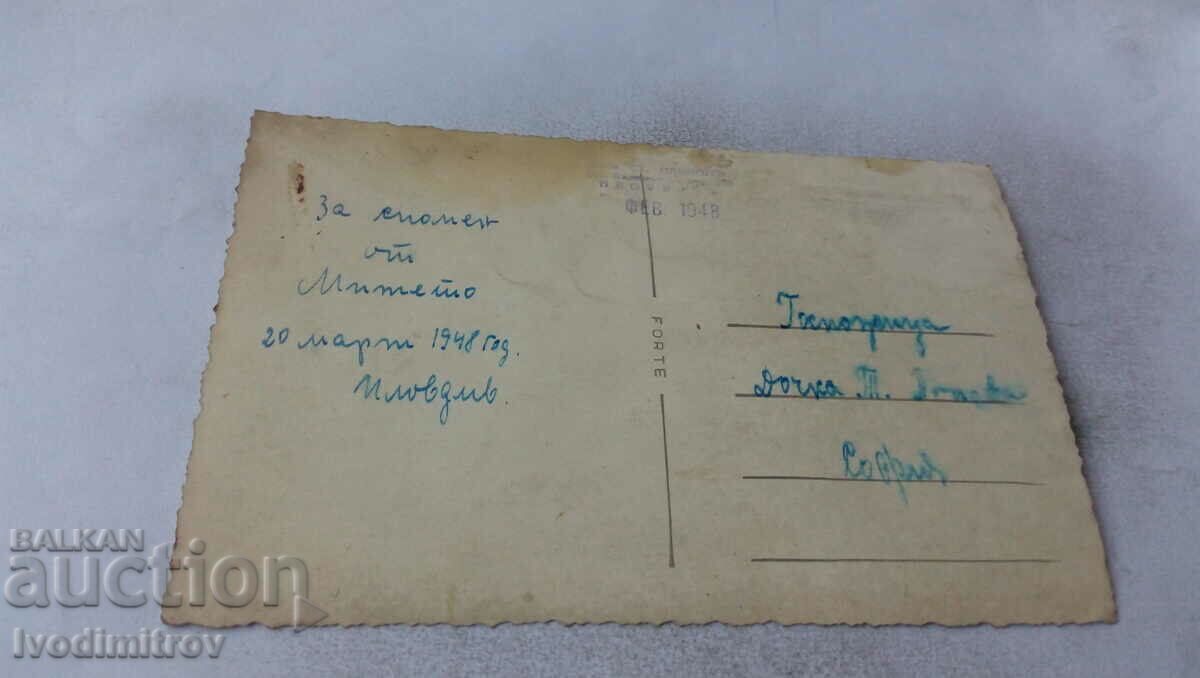 За спомен
от
Митето
20 март 1948 год.
Пловдив.
ФЕВ. 1948
FORTE
Госпожица
Дочка Т.
София
BALKAN
auction
Ivodimitrov